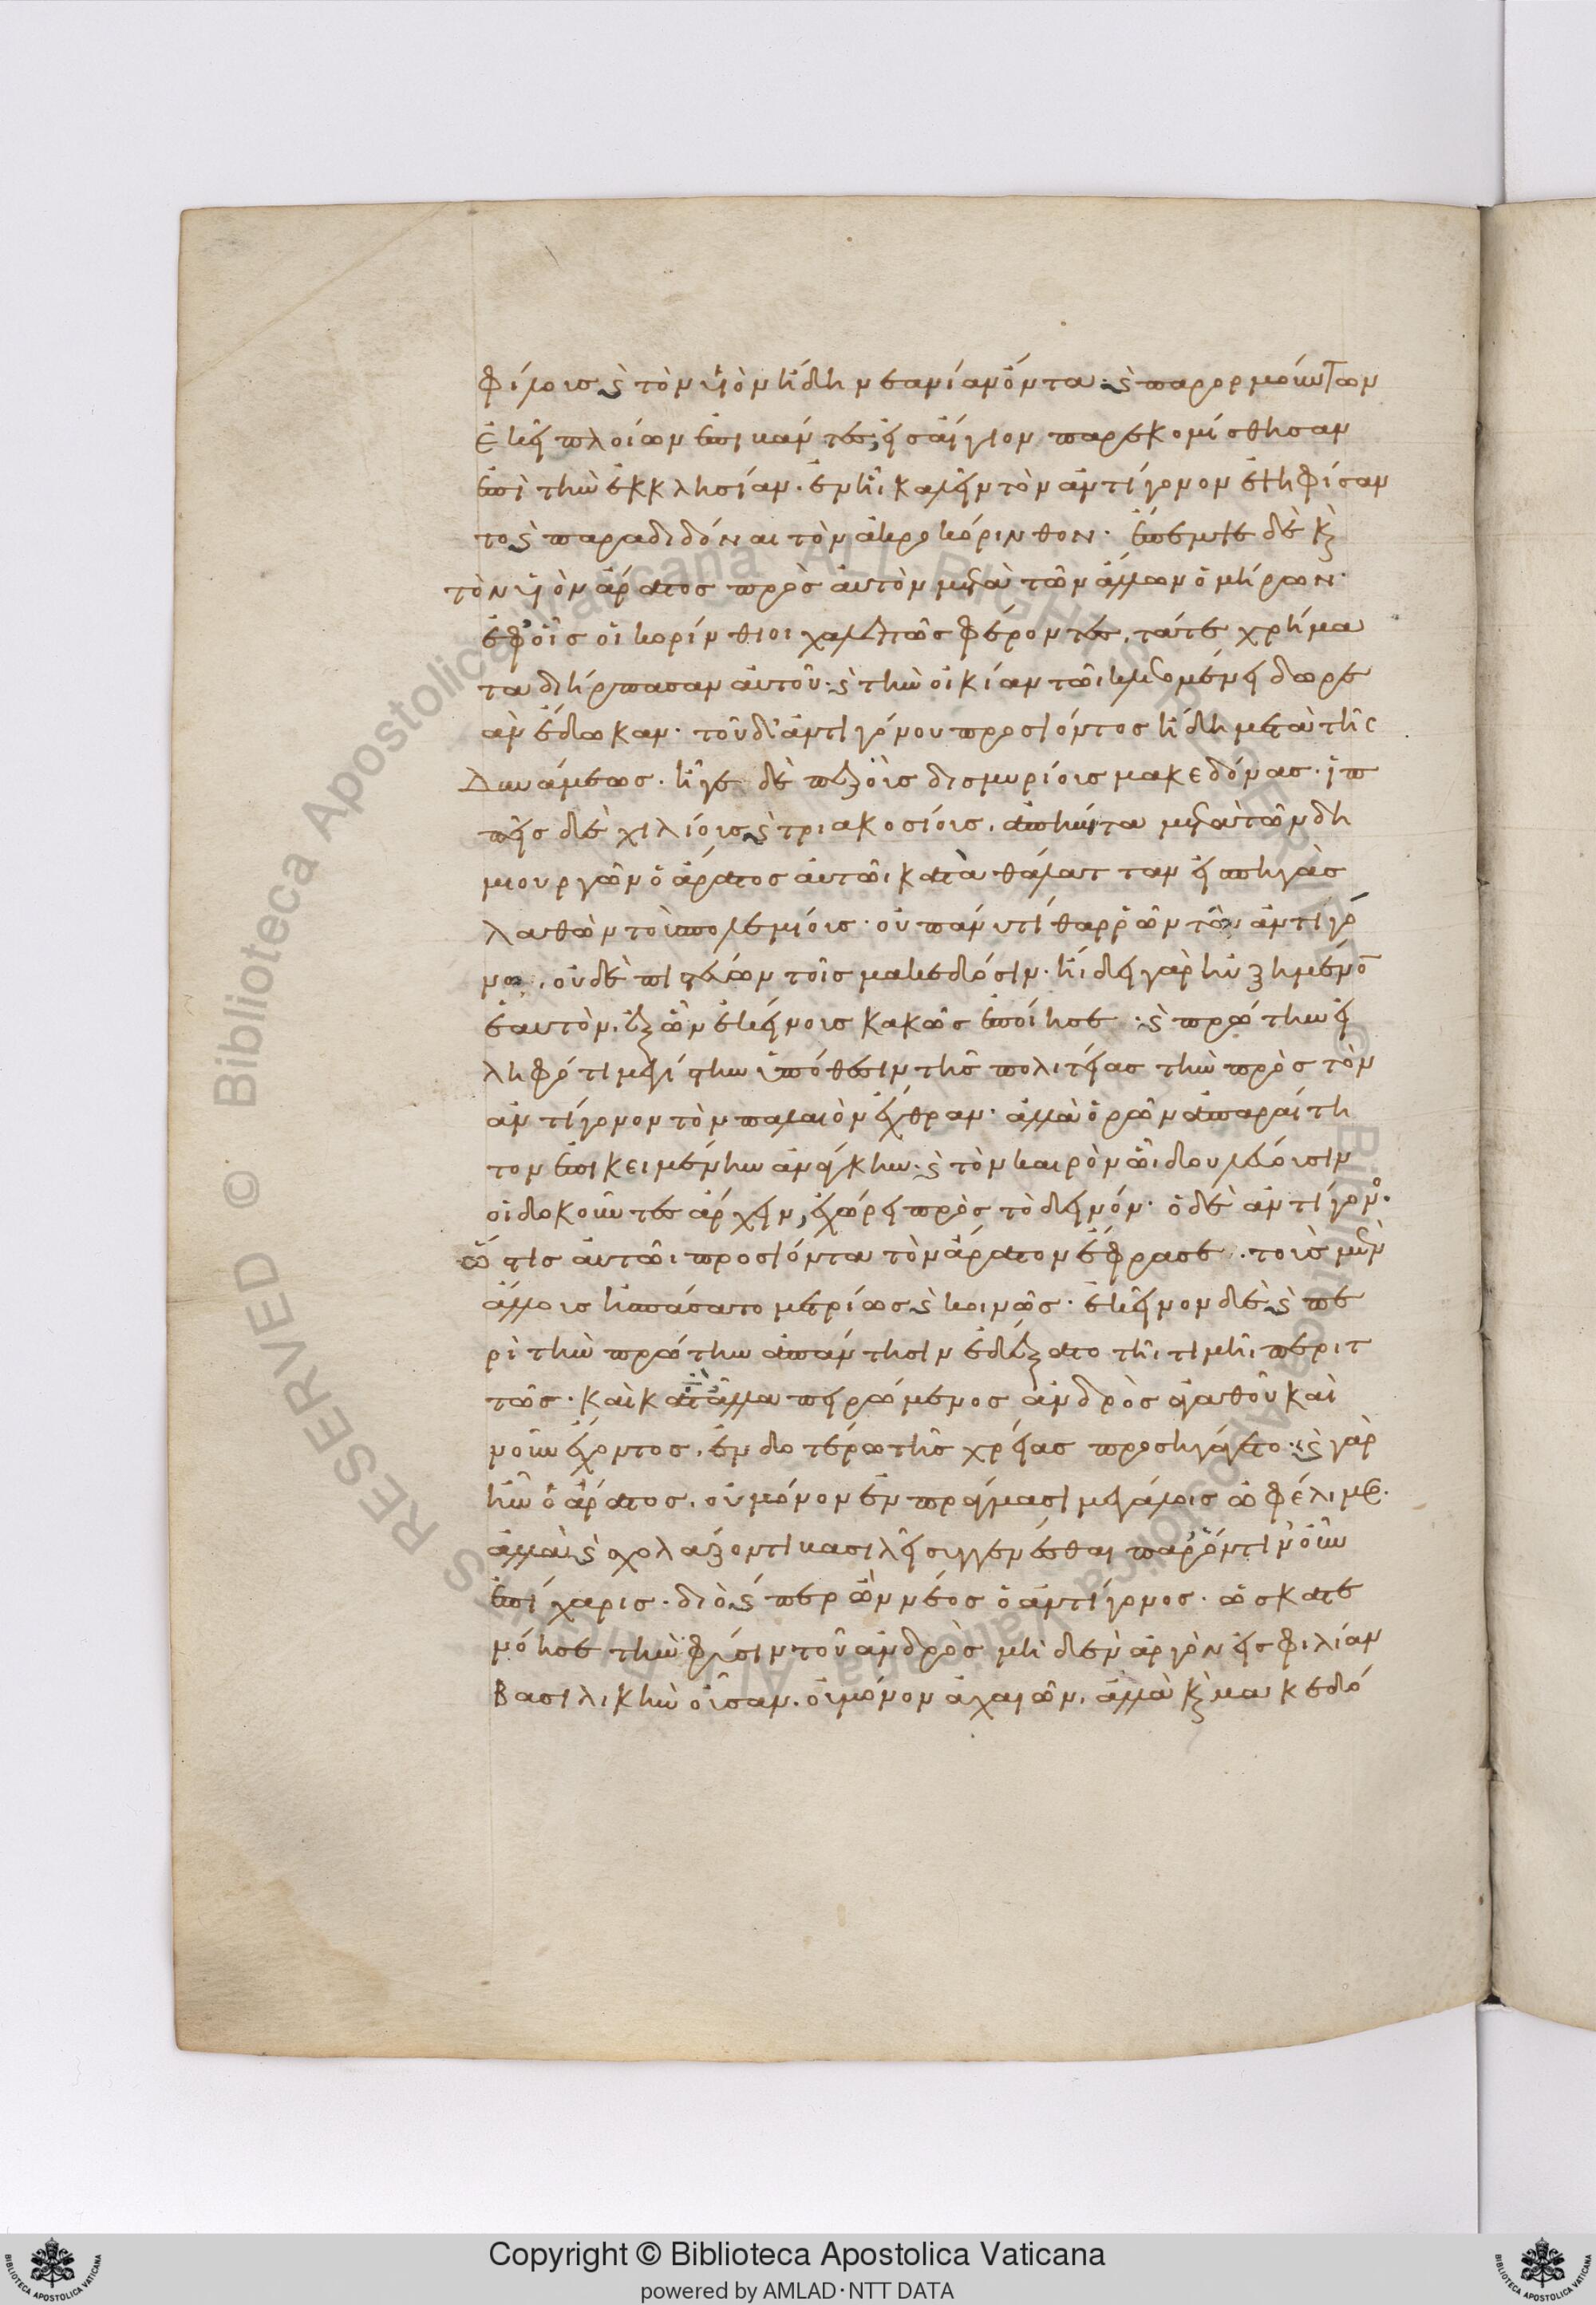 φίλοις καὶ τὸν υἱὸν ἤδη νεανίαν ὄντα· καὶ παρορμούντων
ἐκεῖ πλοίων ἐπιβάντες, εἰς αἴγιον παρεκομίσθησαν
ἐπὶ τὴν ἐκκλησίαν. ἐν ἧι καλεῖν τὸν ἀντίγονον ἐψηφίσαν
το καὶ παραδιδόναι τὸν ἀκροκόρινθον. ἔπεμψε δὲ καὶ
τὸν υἱὸν ἄρατος πρὸς αὐτὸν μετὰ τῶν ἄλλων ὁμήρων.
ἐφ' οἷς οἱ κορίνθιοι χαλεπῶς φέροντες, τάτε χρήμα
τα διήρπασαν αὐτοῦ· καὶ τὴν οἰκίαν τῶι κλεομένει δωρε
ὰν ἔδωκαν. τοῦ δ' ἀντιγόνου προσιόντος ἤδη μετὰ τῆς
Δυνάμεως. ἦγε δὲ πεζοῖς δισμυρίοις μακεδόνας. ἱπ
πεῖς δὲ χιλίοις καὶ τριακοσίοις, ἀπήντα μετὰ τῶν δη
μιουργῶν ὁ ἄρατος αὐτῶι κατὰ θάλατταν εἰς πηγὰς
λαθὼν τοὺς πολεμίοις. οὐ πάνυ τι θαρρῶν τὸν ἀντίγο
νον, οὐδὲ πιστεύων τοῖς μακεδόσιν. ἤδει γὰρ ηὐξημένον
ἑαυτὸν, ἐξ ὧν ἐκείνοις κακῶς ἐποίησε· καὶ πρώτην εἰ
ληφότι μεγίστην ὑπόθεσιν τῆς πολιτείας τὴν πρὸς τὸν
ἀντίγονον τὸν παλαιὸν ἔχθραν. ἀλλὰ ὁρῶν ἀπαραίτη
τον ἐπικειμένην ἀνάγκην. καὶ τὸν καιρὸν ὧι δουλεύουσιν
οἱ δοκοῦντες ἄρχειν, ἐχώρει πρὸς τὸ δεινόν. ὁ δὲ ἀντίγονος.
ὥς τις αὐτῶι προσιόντα τὸν ἄρατον ἔφρασε. τοὺς μὲν
ἄλλοις ἠσπάσατο μετρίως καὶ κοινῶς. ἐκεῖνον δὲ καὶ πε
ρὶ τὴν πρώτην ἀπάντησιν ἐδέξατο τῆι τιμῆι περιτ
τῶς. καὶ κατὰ τἄλλα πειρώμενος ἀνδρὸς ἀγαθοῦ καὶ
νοῦν ἔχοντος, ἐνδοτέρω τῆς χρείας προσηγάγετο. καὶ γὰρ
ἦν ὁ ἄρατος, οὐ μόνον ἐν πράγμασι μεγάλοις ὠφέλιμος.
ἀλλὰ καὶ σχολάζοντι βασιλεῖ συγγενέσθαι παρ' ὁντινοῦν
ἐπίχαρις. διὸ καίπερ ὢν νέος ὁ ἀντίγονος. ὡς κατε
νόησε τὴν φύσιν τοῦ ἀνδρὸς μηδὲν ἀργὸν εἰς φιλίαν
Βασιλικὴν οὖσαν. οὐ μόνον ἀχαιῶν, ἀλλὰ καὶ μακεδό
Copyright © Biblioteca Apostolica Vaticana
powered by AMLAD·NTT DATA